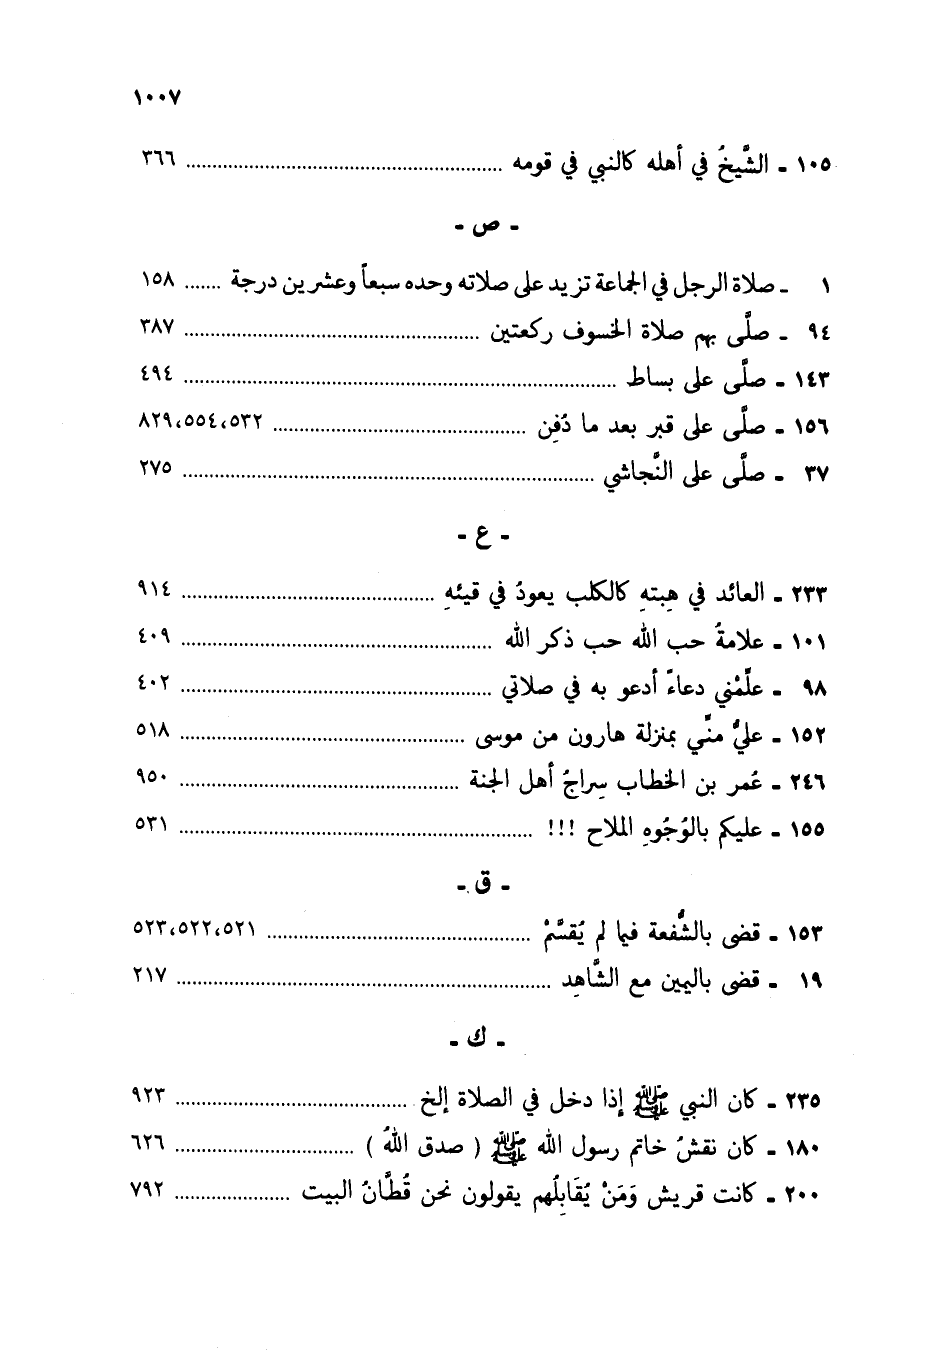 ١٠٠٧
١٠٥ - الشَّيخُ في أهله كالنبي في قومه ........ ٣٦٦
- ص -
١ - صلاة الرجل في الجماعة تزيد على صلاته وحده سبعاً وعشرين درجة ........ ١٥٨
٩٤ - صلَّى بهم صلاة الخسوف ركعتين ........ ٣٨٧
١٤٣ - صلَّى على بساط ........ ٤٩٤
١٥٦ - صلَّى على قبر بعد ما دُفِن ........ ٥٣٢،٥٥٤،٨٢٩
٣٧ - صلَّى على النَّجاشي ........ ٢٧٥
- ع -
٢٣٣ - العائد في هِبتهِ كالكلب يعودُ في قيئهِ ........ ٩١٤
١٠١ - علامةُ حب الله حب ذكر الله ........ ٤٠٩
٩٨ - علِّمْني دعاءً أدعو به في صلاتي ........ ٤٠٢
١٥٢ - عليٌّ منِّي بمنزلة هارون من موسى ........ ٥١٨
٢٤٦ - عُمر بن الخطاب سِراجُ أهل الجنة ........ ٩٥٠
١٥٥ - عليكم بالوُجُوهِ الملاح !!! ........ ٥٣١
- ق -
١٥٣ - قضى بالشُّفعة فيما لم يُقسَّمْ ........ ٥٢١،٥٢٢،٥٢٣
١٩ - قضى باليمين مع الشَّاهِد ........ ٢١٧
- ك -
٢٣٥ - كان النبي ﷺ إذا دخل في الصلاة إلخ ........ ٩٢٣
١٨٠ - كان نقشُ خاتم رسول الله ﷺ ( صدق اللهُ ) ........ ٦٢٦
٢٠٠ - كانت قريش وَمَنْ يُقَابِلُهم يقولون نحن قُطَّانُ البيت ........ ٧٩٢